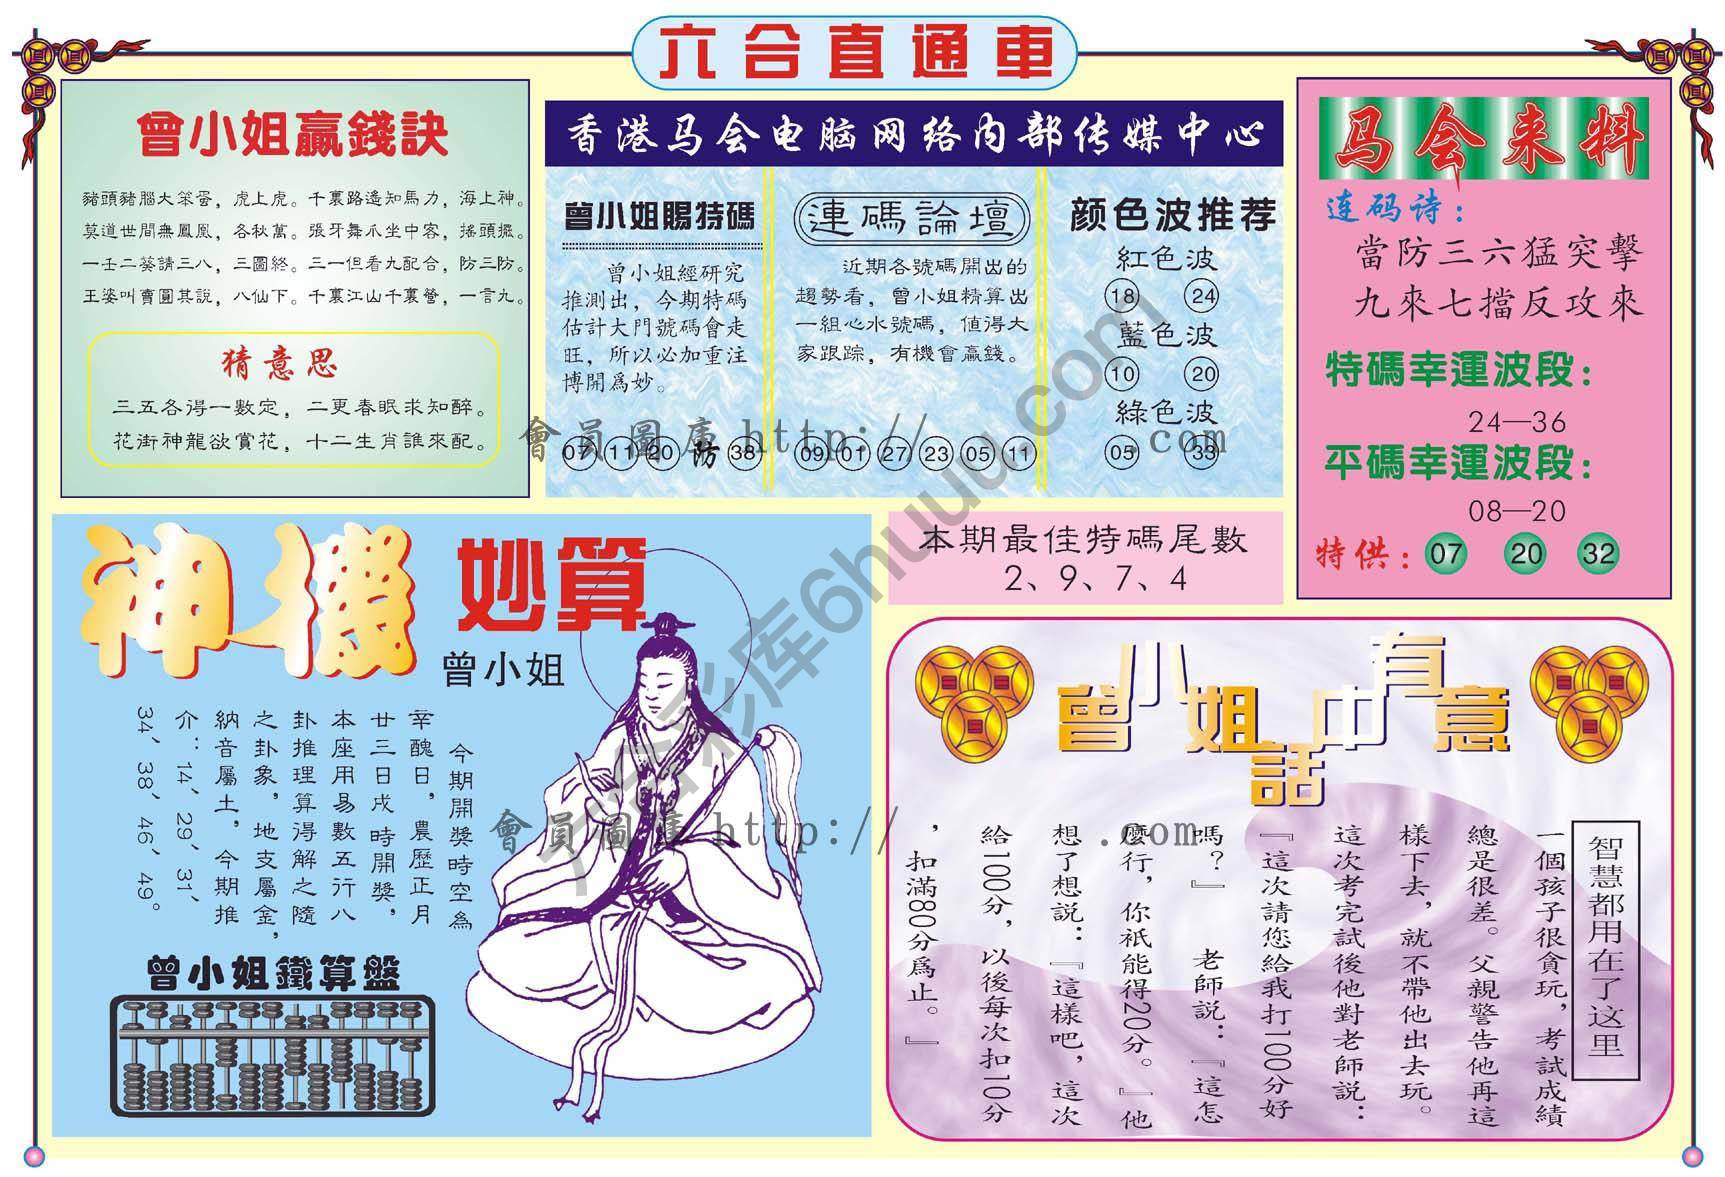 六合直通車
曾小姐贏錢訣
豬頭豬腦大笨蛋，虎上虎。千裏路遙知馬力，海上神。
莫道世間無鳳凰，各秋萬。張牙舞爪坐中客，搖頭擺。
一壬二葵請三八，三圖終。三一但看九配合，防三防。
王婆叫賣圓其說，八仙下。千裏江山千裏營，一言九。
猜意思
三五各得一數定，二更春眠求知醉。
花街神龍欲賞花，十二生肖誰來配。
香港马会电脑网络内部传媒中心
曾小姐賜特碼
曾小姐經研究
推測出，今期特碼
估計大門號碼會走
旺，所以必加重注
博開爲妙。
07 11 20 防 38
連碼論壇
近期各號碼開出的
趨勢看，曾小姐精算出
一組心水號碼，值得大
家跟踪，有機會贏錢。
09 01 27 23 05 11
颜色波推荐
紅色波
18 24
藍色波
10 20
綠色波
05 33
马会来料
连码诗：
當防三六猛突擊
九來七擋反攻來
特碼幸運波段：
24—36
平碼幸運波段：
08—20
特供：07 20 32
本期最佳特碼尾數
2、9、7、4
神機妙算
曾小姐
今期開獎時空為
辛醜日，農歷正月
廿三日戌時開獎，
本座用易數五行八
卦推理算得解之隨
之卦象，地支屬金，
納音屬土，今期推
介：14、29、31、
34、38、46、49。
曾小姐鐵算盤
曾小姐話中有意
智慧都用在了这里
一個孩子很貪玩，考試成績
總是很差。父親警告他再這
樣下去，就不帶他出去玩。
這次考完試後他對老師説：
『這次請您給我打100分好
嗎？』 老師説：『這怎
麼行，你衹能得20分。』他
想了想説：『這樣吧，這次
給100分，以後每次扣10分
，扣滿80分爲止。』
會員圖庫 http:// .com
會員圖庫 http:// .com
六合彩库6huu.com